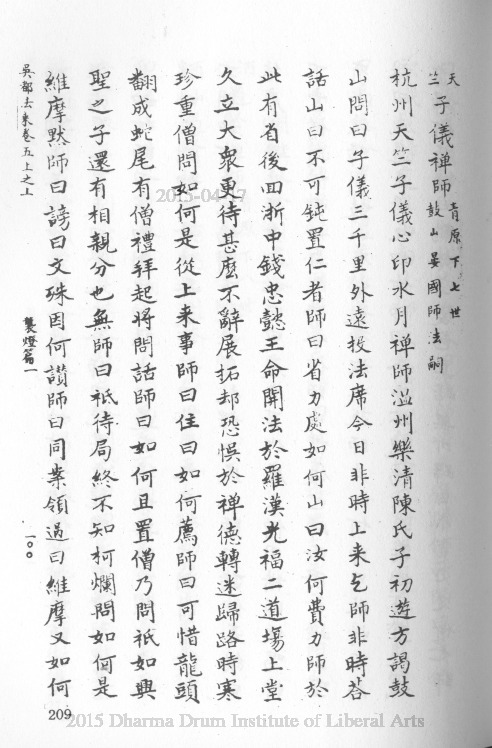 天竺子儀禪師 青原下七世
鼓山晏國師法嗣
杭州天竺子儀心印水月禪師溫州樂清陳氏子初遊方謁鼓
山問曰子儀三千里外遠投法席今日非時上来乞師非時荅
話山曰不可鈍置仁者師曰省力處如何山曰汝何費力師於
此有省後回浙中錢忠懿王命開法於羅漢光福二道場上堂
久立大衆更待甚麼不辭展拓却恐悞於禅德轉迷歸路時寒
珍重僧問如何是從上来事師曰住曰如何薦師曰可惜龍頭
翻成蛇尾有僧禮拜起將問話師曰如何且置僧乃問祇如興
聖之子還有相親分也無師曰祇待局終不知柯爛問如何是
維摩黙師曰謗曰文殊因何讃師曰同案領過曰維摩又如何
吳都法乗卷五上之上
襲燈篇一
一〇〇
209
2015-04-17
2015 Dharma Drum Institute of Liberal Arts